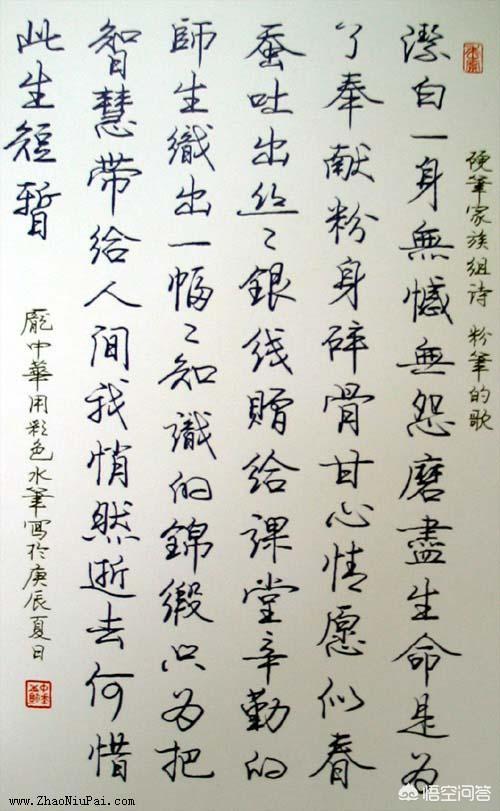 硬筆家族组诗 粉筆的歌
潔白一身無憾無怨磨盡生命是为
了奉献粉身碎骨甘心情愿似春
蚕吐出丝丶銀线赠给课堂辛勤的
師生織出一幅丶知識的錦缎只为把
智慧带给人间我悄然逝去何惜
此生短暫
龐中華用彩色水筆寫於庚辰夏日
www.ZhaoNiuPai.com
悟空问答